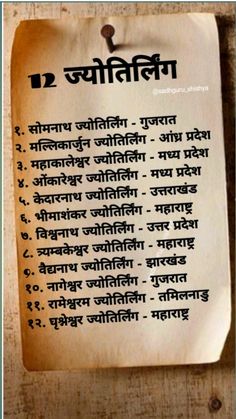 12 ज्योतिर्लिंग
@sadhguru_shishya
१. सोमनाथ ज्योतिर्लिंग - गुजरात
२. मल्लिकार्जुन ज्योतिर्लिंग - आंध्र प्रदेश
३. महाकालेश्वर ज्योतिर्लिंग - मध्य प्रदेश
४. ओंकारेश्वर ज्योतिर्लिंग - मध्य प्रदेश
५. केदारनाथ ज्योतिर्लिंग - उत्तराखंड
६. भीमाशंकर ज्योतिर्लिंग - महाराष्ट्र
७. विश्वनाथ ज्योतिर्लिंग - उत्तर प्रदेश
८. त्र्यम्बकेश्वर ज्योतिर्लिंग - महाराष्ट्र
९. वैद्यनाथ ज्योतिर्लिंग - झारखंड
१०. नागेश्वर ज्योतिर्लिंग - गुजरात
११. रामेश्वरम ज्योतिर्लिंग - तमिलनाडु
१२. घृश्नेश्वर ज्योतिर्लिंग - महाराष्ट्र